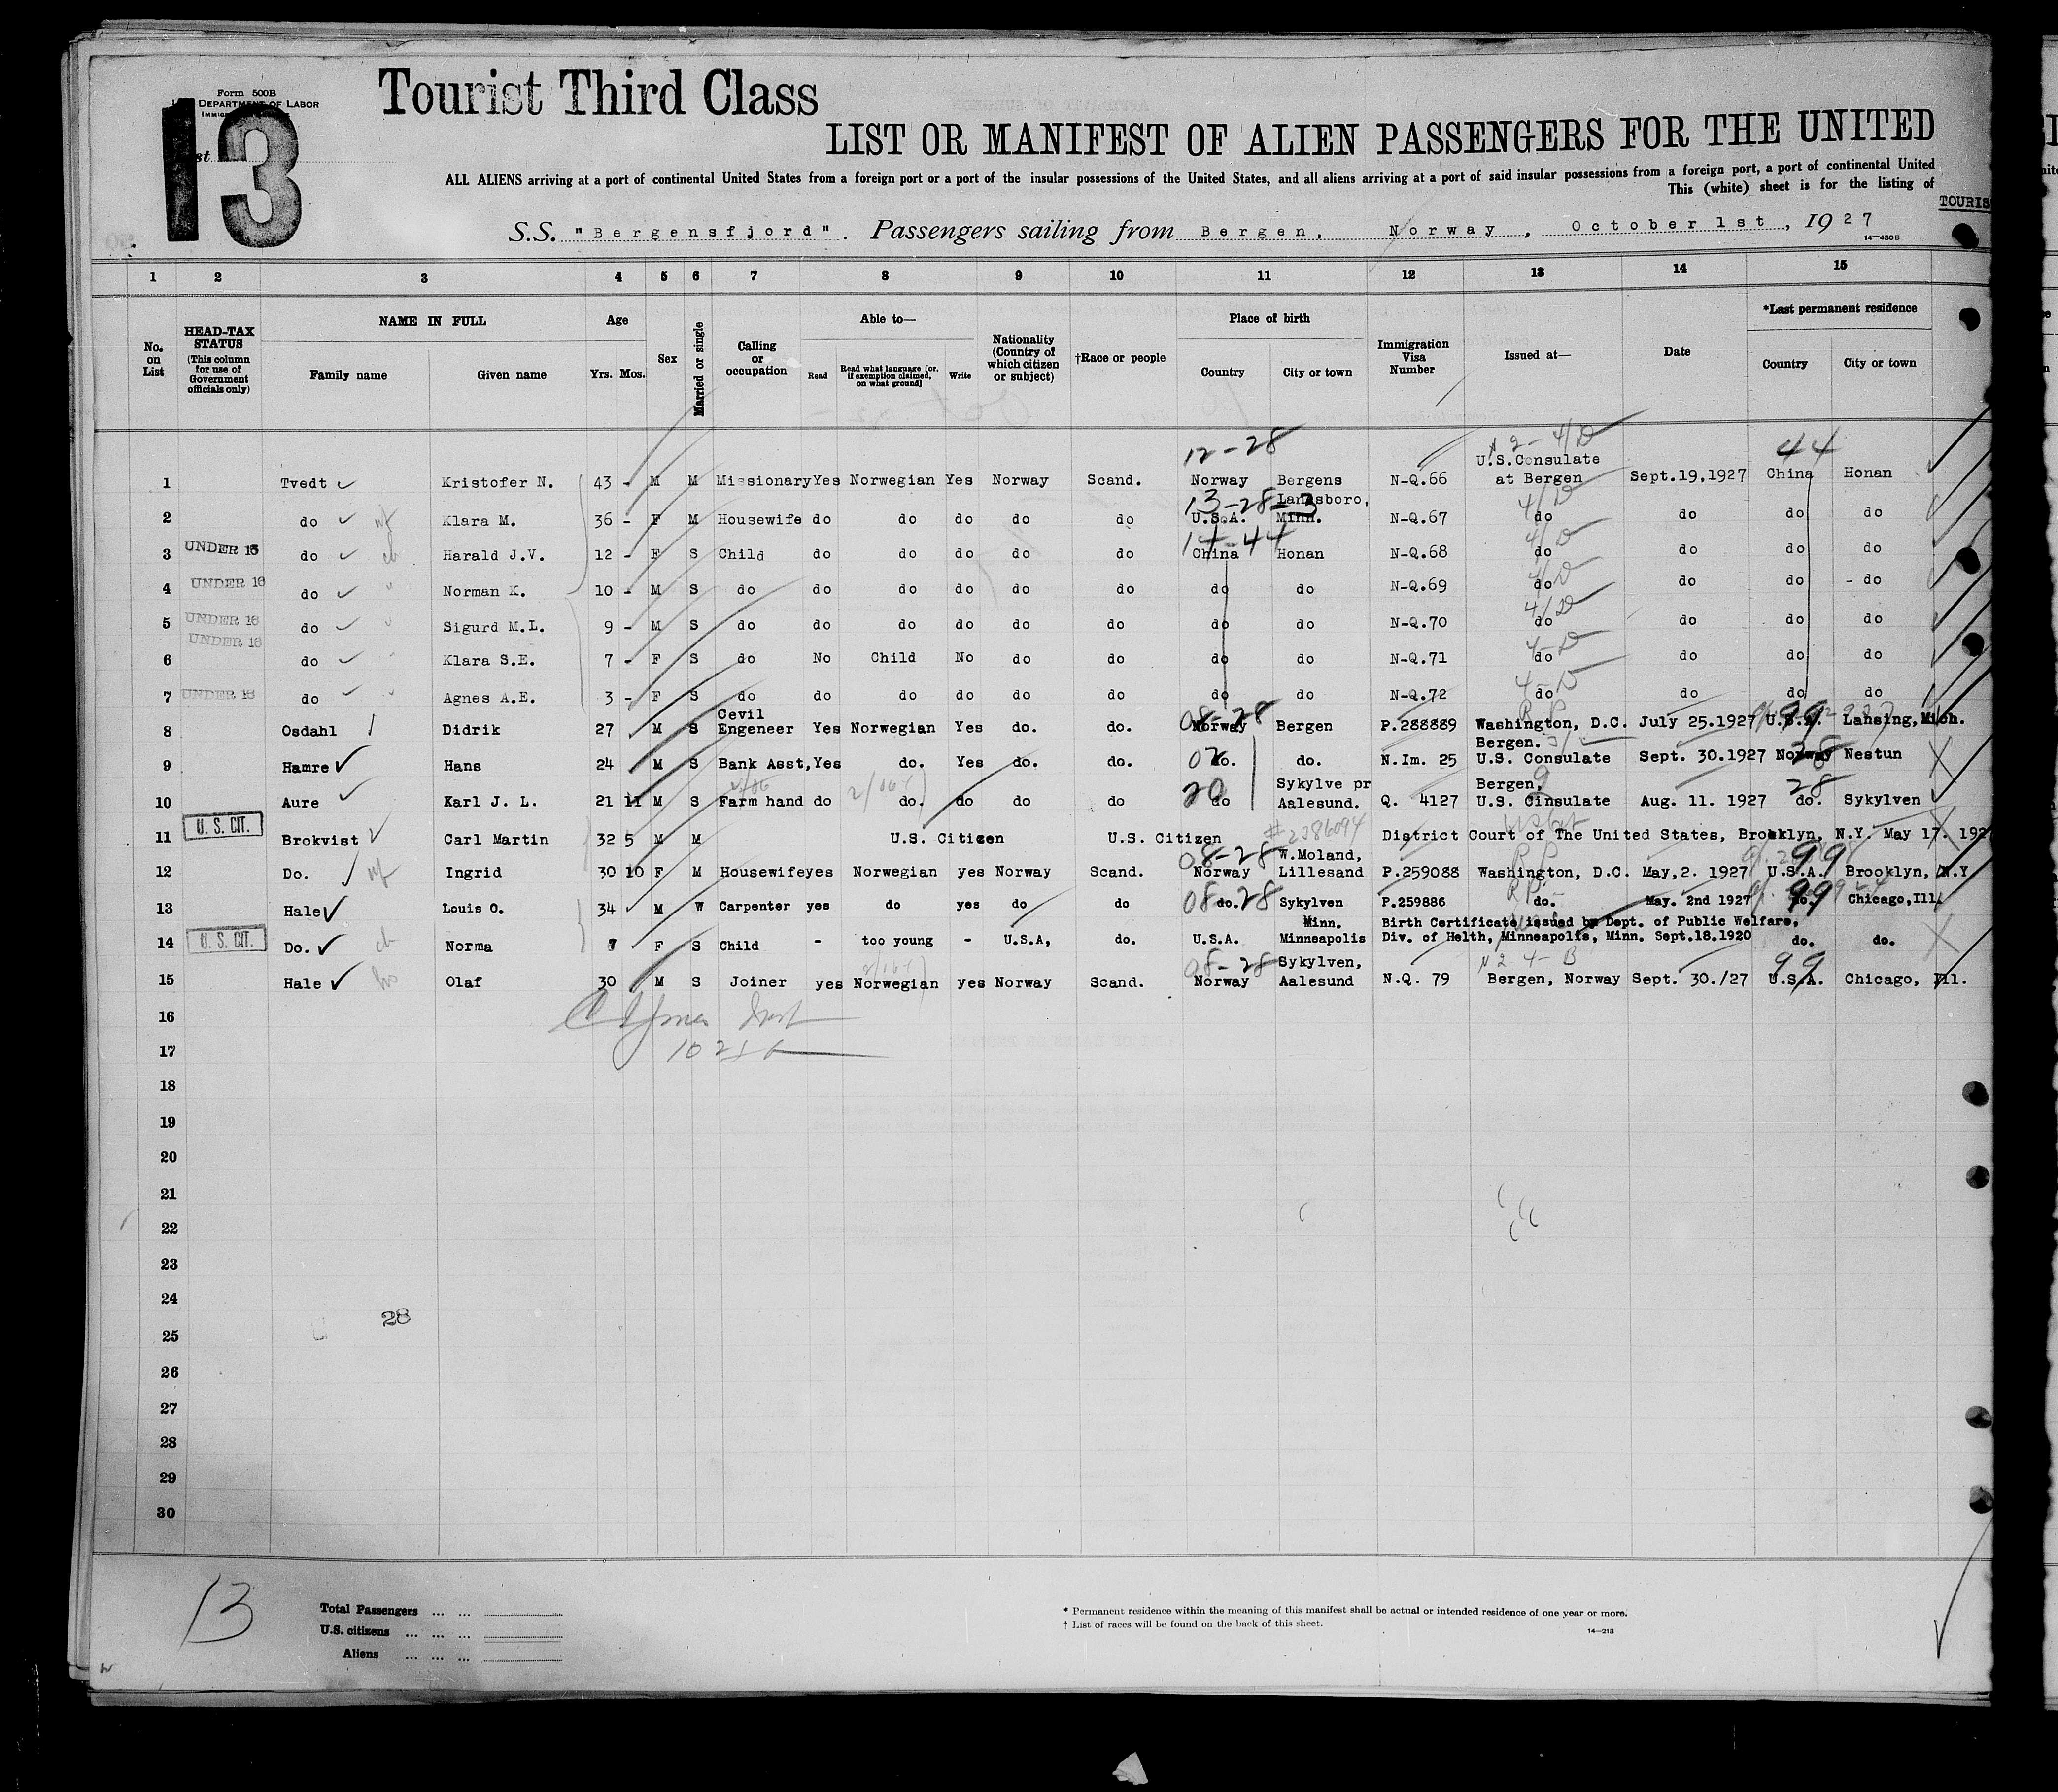 Form 500B
DEPARTMENT OF LABOR
13
Tourist Third Class
LIST OR MANIFEST OF ALIEN PASSENGERS FOR THE UNITED
ALL ALIENS arriving at a port of continental United States from a foreign port or a port of the insular possessions of the United States, and all aliens arriving at a port of said insular possessions from a foreign port, a port of continental United
This (white) sheet is for the listing of
TOURIS
S.S. "Bergensfjord". Passengers sailing from Bergen, Norway, October 1st, 1927
14-430B
1 2 3 4 5 6 7 8 9 10 11 12 13 14 15
No. on List
HEAD-TAX STATUS (This column for use of Government officials only)
NAME IN FULL Family name Given name
Age Yrs. Mos.
Sex
Married or single
Calling or occupation
Able to— Read Read what language (or, if exemption claimed, on what ground) Write
Nationality (Country of which citizen or subject)
†Race or people
Place of birth Country City or town
Immigration Visa Number
Issued at—
Date
*Last permanent residence Country City or town
12-28 4/D 44
1 Tvedt Kristofer N. 43 - M M Missionary Yes Norwegian Yes Norway Scand. Norway Bergens N-Q.66 U.S.Consulate at Bergen Sept.19,1927 China Honan
13-28-3 4/D
2 do wf Klara M. 36 - F M Housewife do do do do do U.S.A. Lanesboro, Minn. N-Q.67 do do do do
14-44 4/D
3 UNDER 16 do ch Harald J.V. 12 - F S Child do do do do do China Honan N-Q.68 do do do do
4/D
4 UNDER 16 do " Norman K. 10 - M S do do do do do do do do N-Q.69 do do do - do
4/D
5 UNDER 16 do " Sigurd M.L. 9 - M S do do do do do do do do N-Q.70 do do do do
4-D
6 UNDER 16 do " Klara S.E. 7 - F S do No Child No do do do do N-Q.71 do do do do
4-D
7 UNDER 16 do " Agnes A.E. 3 - F S do do do do do do do do N-Q.72 do do do do
08-28 RP 99
8 Osdahl Didrik 27 M S Cevil Engeneer Yes Norwegian Yes do. do. Norway Bergen P.288889 Washington, D.C. July 25.1927 U.S.A. Lansing, Mich.
28
9 Hamre Hans 24 M S Bank Asst, Yes do. Yes do. do. do. do. N.Im. 25 Bergen. U.S. Consulate Sept. 30.1927 Norway Nestun
20 28
10 Aure Karl J. L. 21 11 M S Farm hand do do. do do do do Sykylve pr Aalesund. Q. 4127 Bergen, U.S. Cinsulate Aug. 11. 1927 do. Sykylven
#2386094
11 U. S. CIT. Brokvist Carl Martin 32 5 M M U.S. Citizen U.S. Citizen District Court of The United States, Brooklyn, N.Y. May 17. 192
08-28 RP 99
12 Do. wf Ingrid 30 10 F M Housewife yes Norwegian yes Norway Scand. Norway W.Moland, Lillesand P.259088 Washington, D.C. May,2. 1927 U.S.A. Brooklyn, N.Y
08 28 RP 99
13 Hale Louis O. 34 M W Carpenter yes do yes do do do. Sykylven P.259886 do. May. 2nd 1927 do. Chicago, Ill.
14 U. S. CIT. Do. ch Norma 7 F S Child - too young - U.S.A, do. U.S.A. Minn. Minneapolis Birth Certificate issued by Dept. of Public Welfare, Div. of Helth, Minneapolis, Minn. Sept.18.1920 do. do.
08-28 99
15 Hale Olaf 30 M S Joiner yes Norwegian yes Norway Scand. Norway Sykylven, Aalesund N.Q. 79 Bergen, Norway Sept. 30./27 U.S.A. Chicago, Ill.
16
17
18
19
20
21
22
23
24
28
25
26
27
28
29
30
13
Total Passengers ... ...
U.S. citizens ... ... ...
Aliens ... ... ...
* Permanent residence within the meaning of this manifest shall be actual or intended residence of one year or more.
† List of races will be found on the back of this sheet.
14-213